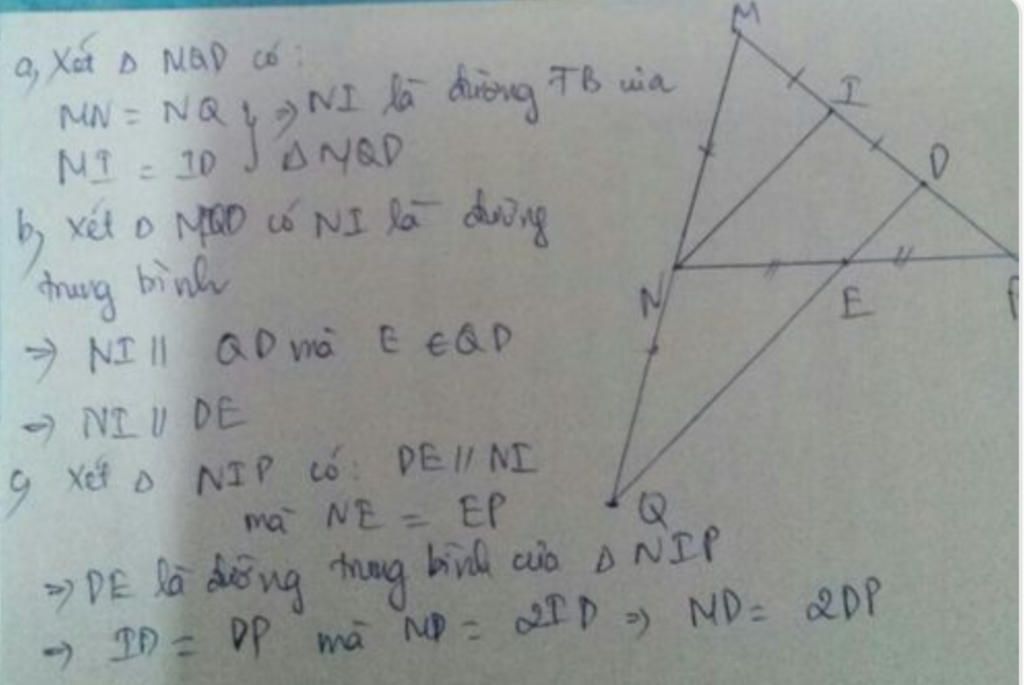 a, Xét Δ MQD có:
MN = NQ } => NI là đường TB của
MI = ID } Δ MQD
b, Xét Δ MQD có NI là đường
trung bình
=> NI // QD mà E ∈ QD
=> NI // DE
c, Xét Δ NIP có: DE // NI
mà NE = EP
=> DE là đường trung bình của Δ NIP
=> ID = DP mà MD = 2ID => MD = 2DP
M
I
D
N
E
P
Q